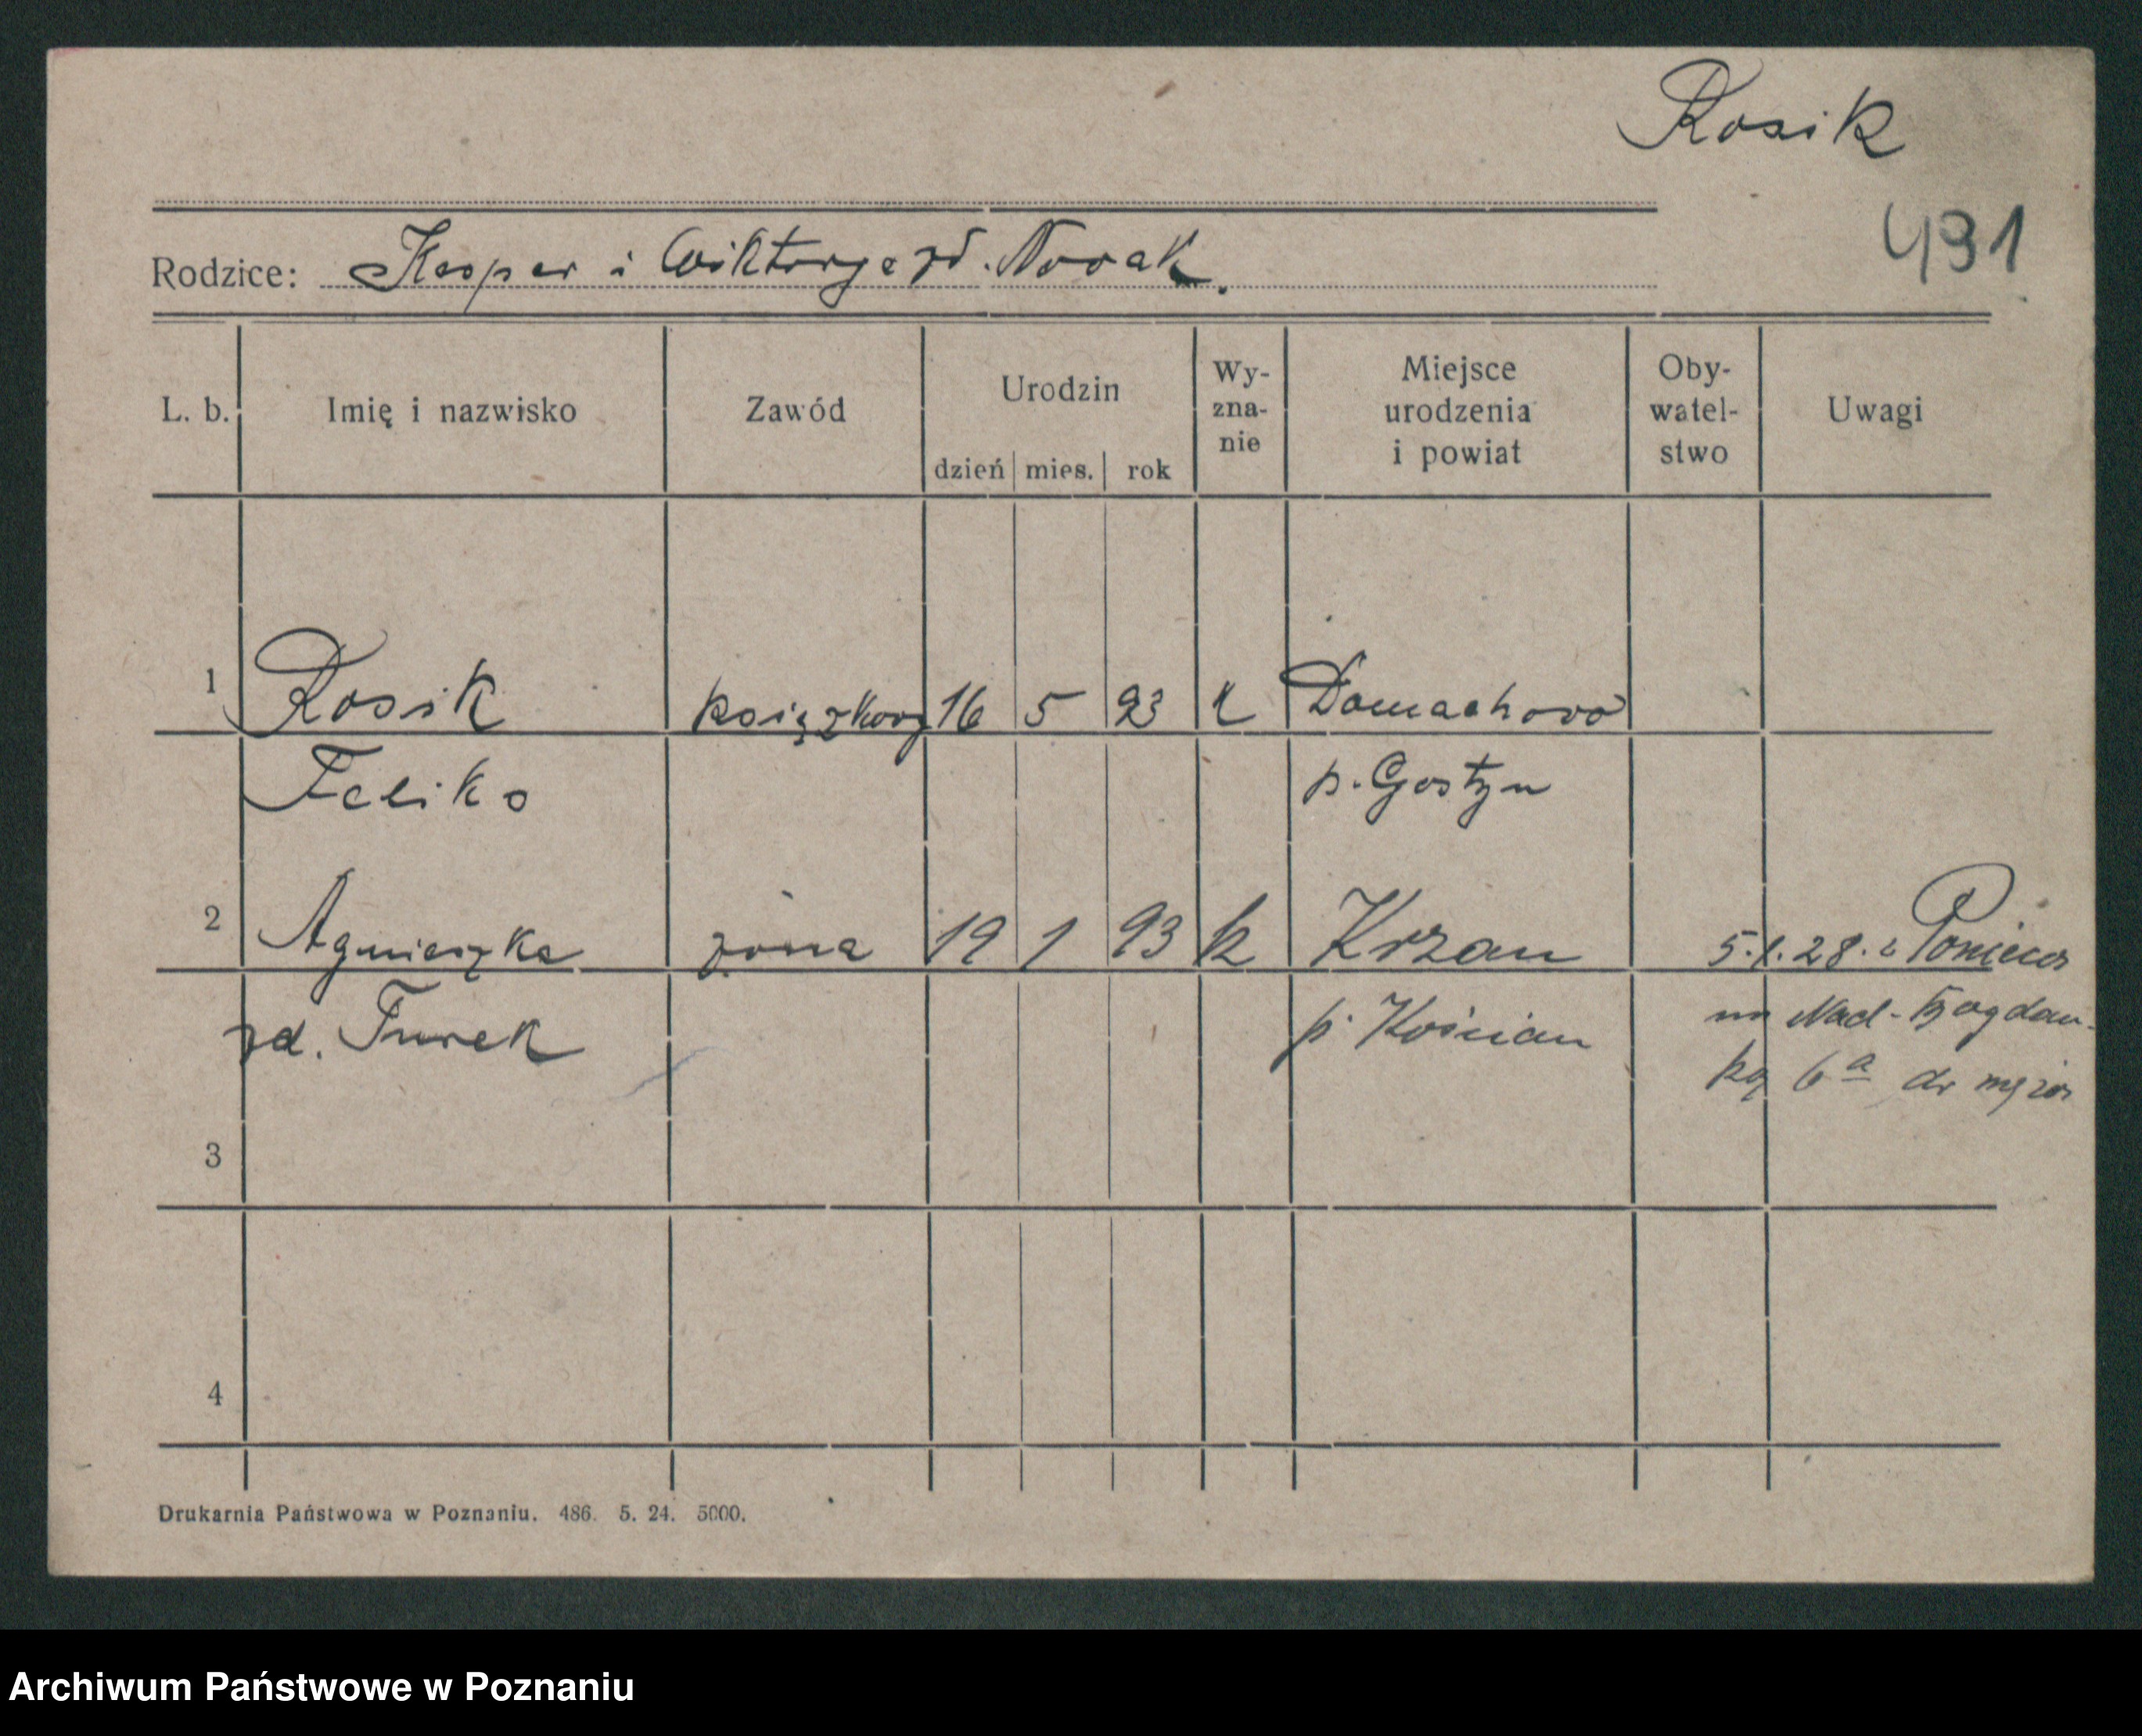 Kosik
491
Rodzice: Kasper i Wiktorja zd. Nowak.
L. b. Imię i nazwisko Zawód Urodzin dzień mies. rok Wy-zna-nie Miejsce urodzenia i powiat Oby-watel-stwo Uwagi
1 Kosik książkowy 16 5 93 k Domachowo
Feliks p. Gostyn
2 Agnieszka żona 19 1 93 k Krzan 5.1.28. z Ponieca
zd. Turek p. Kościan na Nad-Bogdan-
ką 6a do męża
3
4
Drukarnia Państwowa w Poznaniu. 486. 5. 24. 5000.
Archiwum Państwowe w Poznaniu